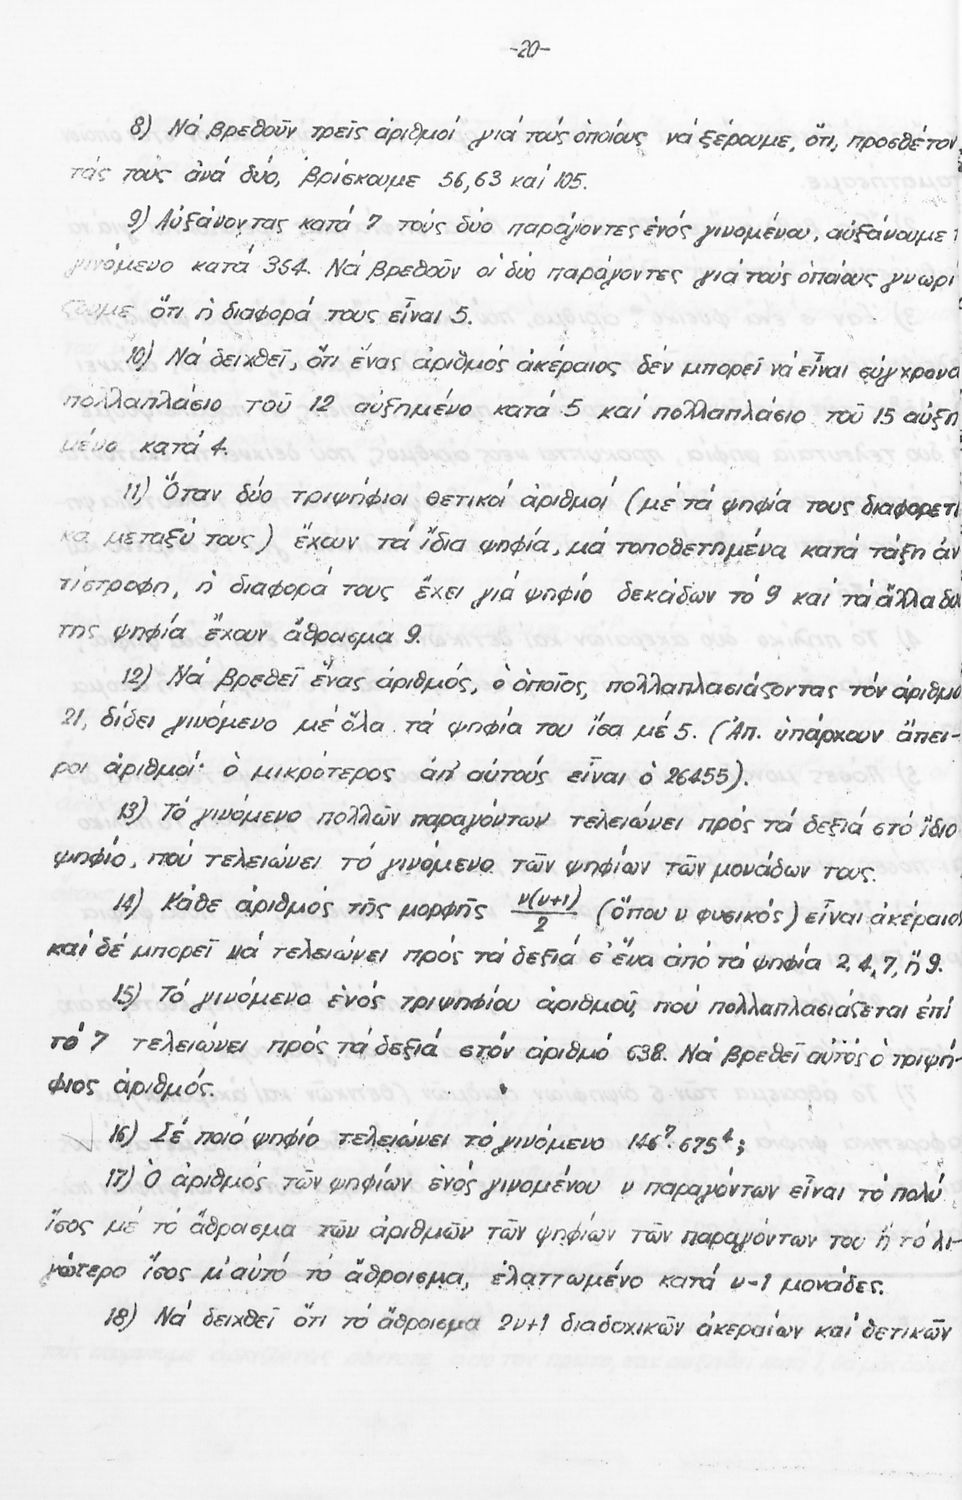 -20-
8) Νά βρεθοῦν τρεῖς ἀριθμοί γιά τούς ὁποίους νά ξέρουμε, ὅτι, προσθέτον
τάς τούς ἀνά δύο, βρίσκουμε 56, 63 καί 105.
9) Αὐξάνοντας κατά 7 τούς δύο παράγοντες ἑνός γινομένου, αὐξάνουμε τ
γινόμενο κατά 364. Νά βρεθοῦν οἱ δύο παράγοντες γιά τούς ὁποίους γνωρί
ζουμε ὅτι ἡ διαφορά τους εἶναι 5.
10) Νά δειχθεῖ, ὅτι ἕνας ἀριθμός ἀκέραιος δέν μπορεῖ νά εἶναι σύγχρονα
πολλαπλάσιο τοῦ 12 αὐξημένο κατά 5 καί πολλαπλάσιο τοῦ 15 αὐξη
μένο κατά 4.
11) Ὅταν δύο τριψήφιοι θετικοί ἀριθμοί (μέ τά ψηφία τους διαφορετι
κά μεταξύ τους) ἔχουν τά ἴδια ψηφία, μά τοποθετημένα κατά τάξη ἀν
τίστροφη, ἡ διαφορά τους ἔχει γιά ψηφίο δεκάδων τό 9 καί τά ἄλλα δύ
της ψηφία ἔχουν ἄθροισμα 9.
12) Νά βρεθεῖ ἕνας ἀριθμός, ὁ ὁποῖος, πολλαπλασιάζοντας τόν ἀριθμό
21, δίδει γινόμενο μέ ὅλα τά ψηφία του ἴσα μέ 5. (Ἀπ. ὑπάρχουν ἄπει-
ροι ἀριθμοί· ὁ μικρότερος ἀπ' αὐτούς εἶναι ὁ 26455).
13) Τό γινόμενο πολλῶν παραγόντων τελειώνει πρός τά δεξιά στό ἴδιο
ψηφίο, πού τελειώνει τό γινόμενο τῶν ψηφίων τῶν μονάδων τους.
14) Κάθε ἀριθμός τῆς μορφῆς ν(ν+1)/2 (ὅπου ν φυσικός) εἶναι ἀκέραιος
καί δέ μπορεῖ νά τελειώνει πρός τά δεξιά σ' ἕνα ἀπό τά ψηφία 2, 4, 7, ἤ 9.
15) Τό γινόμενο ἑνός τριψηφίου ἀριθμοῦ, πού πολλαπλασιάζεται ἐπί
τό 7 τελειώνει πρός τά δεξιά στόν ἀριθμό 638. Νά βρεθεῖ αὐτός ὁ τριψή-
φιος ἀριθμός.
16) Σέ ποιό ψηφίο τελειώνει τό γινόμενο 146⁷·675⁴;
17) Ὁ ἀριθμός τῶν ψηφίων ἑνός γινομένου ν παραγόντων εἶναι τό πολύ
ἴσος μέ τό ἄθροισμα τῶν ἀριθμῶν τῶν ψηφίων τῶν παραγόντων του ἤ τό λι-
γώτερο ἴσος μ' αὐτό τό ἄθροισμα, ἐλαττωμένο κατά ν-1 μονάδες.
18) Νά δειχθεῖ ὅτι τό ἄθροισμα 2ν+1 διαδοχικῶν ἀκεραίων καί θετικῶν